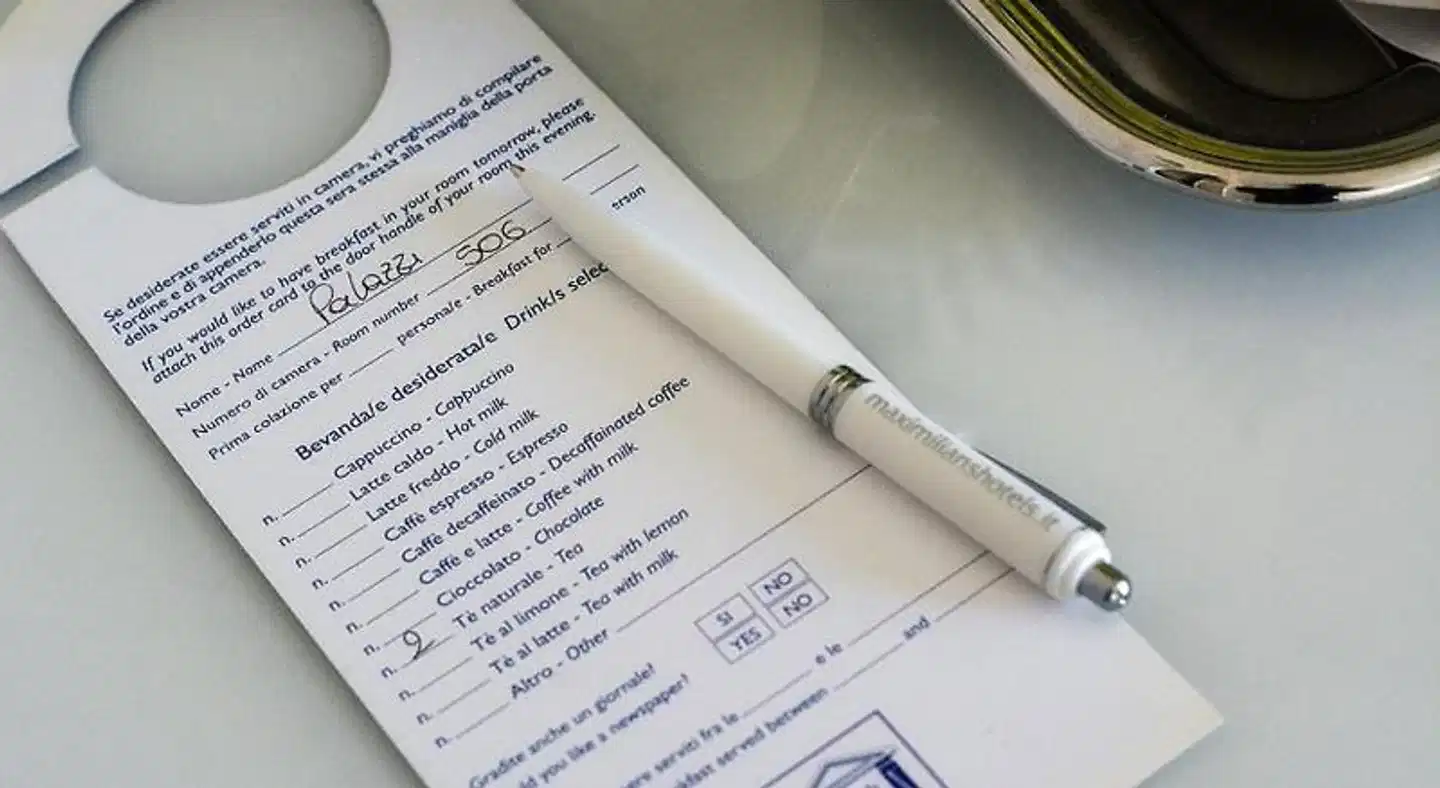 Se desiderate essere serviti in camera, vi preghiamo di compilare
l'ordine e di appenderlo questa sera stessa alla maniglia della porta
della vostra camera.
If you would like to have breakfast in your room tomorrow, please
attach this order card to the door handle of your room this evening.
Nome - Name Palazzi
Numero di camera - Room number 506
Prima colazione per ____ persona/e - Breakfast for ____ erson
Bevanda/e desiderata/e Drink/s selec
n. ____ Cappuccino - Cappuccino
n. ____ Latte caldo - Hot milk
n. ____ Latte freddo - Cold milk
n. ____ Caffè espresso - Espresso
n. ____ Caffè decaffeinato - Decaffainated coffee
n. ____ Caffè e latte - Coffee with milk
n. ____ Cioccolato - Chocolate
n. 2 Tè naturale - Tea
n. ____ Tè al limone - Tea with lemon
n. ____ Tè al latte - Tea with milk
n. ____ Altro - Other
Gradite anche un giornale? SI NO
ld you like a newspaper? YES NO
ere serviti fra le ____ e le ____
kfast served between ____ and ____
maximilianshotels.it